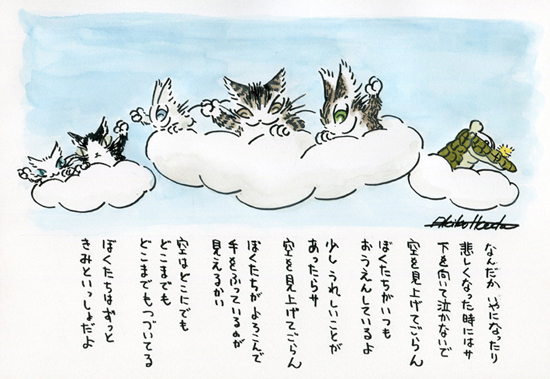 なんだか いやになったり
悲しくなった時にはサ
下を向いて泣かないで
空を見上げてごらん
ぼくたちがいつも
おうえんしているよ
少し うれしいことが
あったらサ
空を見上げてごらん
ぼくたちがよろこんで
手をふっているのが
見えるかい
空はどこにでも
どこまでも
どこまでもつづいてる
ぼくたちはずっと
きみといっしょだよ